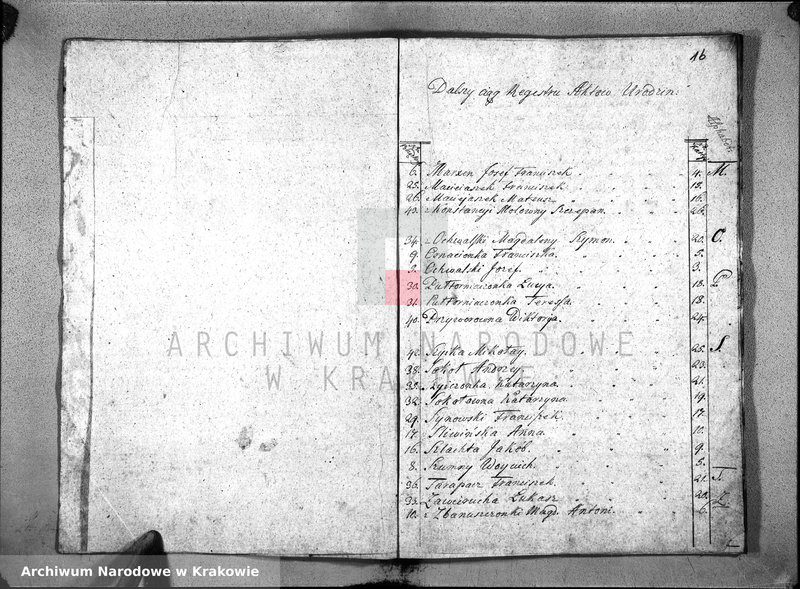 16
Dalszy ciąg Registru Aktow Urodzin.
6. Marzen Josef Franciszek 4. M.
25. Maciaszek Franciszek 15.
26. Maciejaszek Mateusz 16.
43. z Konstancyi Molowny Szczepan 26.
34. z Ochwalski Magdaleny Szymon 20. O.
9. Conacionka Franciszka 5.
3. Ochwalski Josef 3.
30. Lucya 18. P.
31. Teressa 18.
40. Przyworowna Wiktorya 24.
42. Sepka Mikołay 25. S.
38. Sokoł Andrzej 23.
35. Katarzyna 21.
32. Sokołowna Katarzyna 19.
29. Synowski Franciszek 17.
17. Sliwińska Anna 10.
16. Szlachta Jakob 9.
8. Szumny Woyciech 5.
36. Tarapacz Franciszek 21. T.
33. Zawierucha Łukasz 20. Z.
10. z Zbanuszconki Magd. Antoni 6.
ARCHIWUM NARODOWE
W KRAKOWIE
Archiwum Narodowe w Krakowie